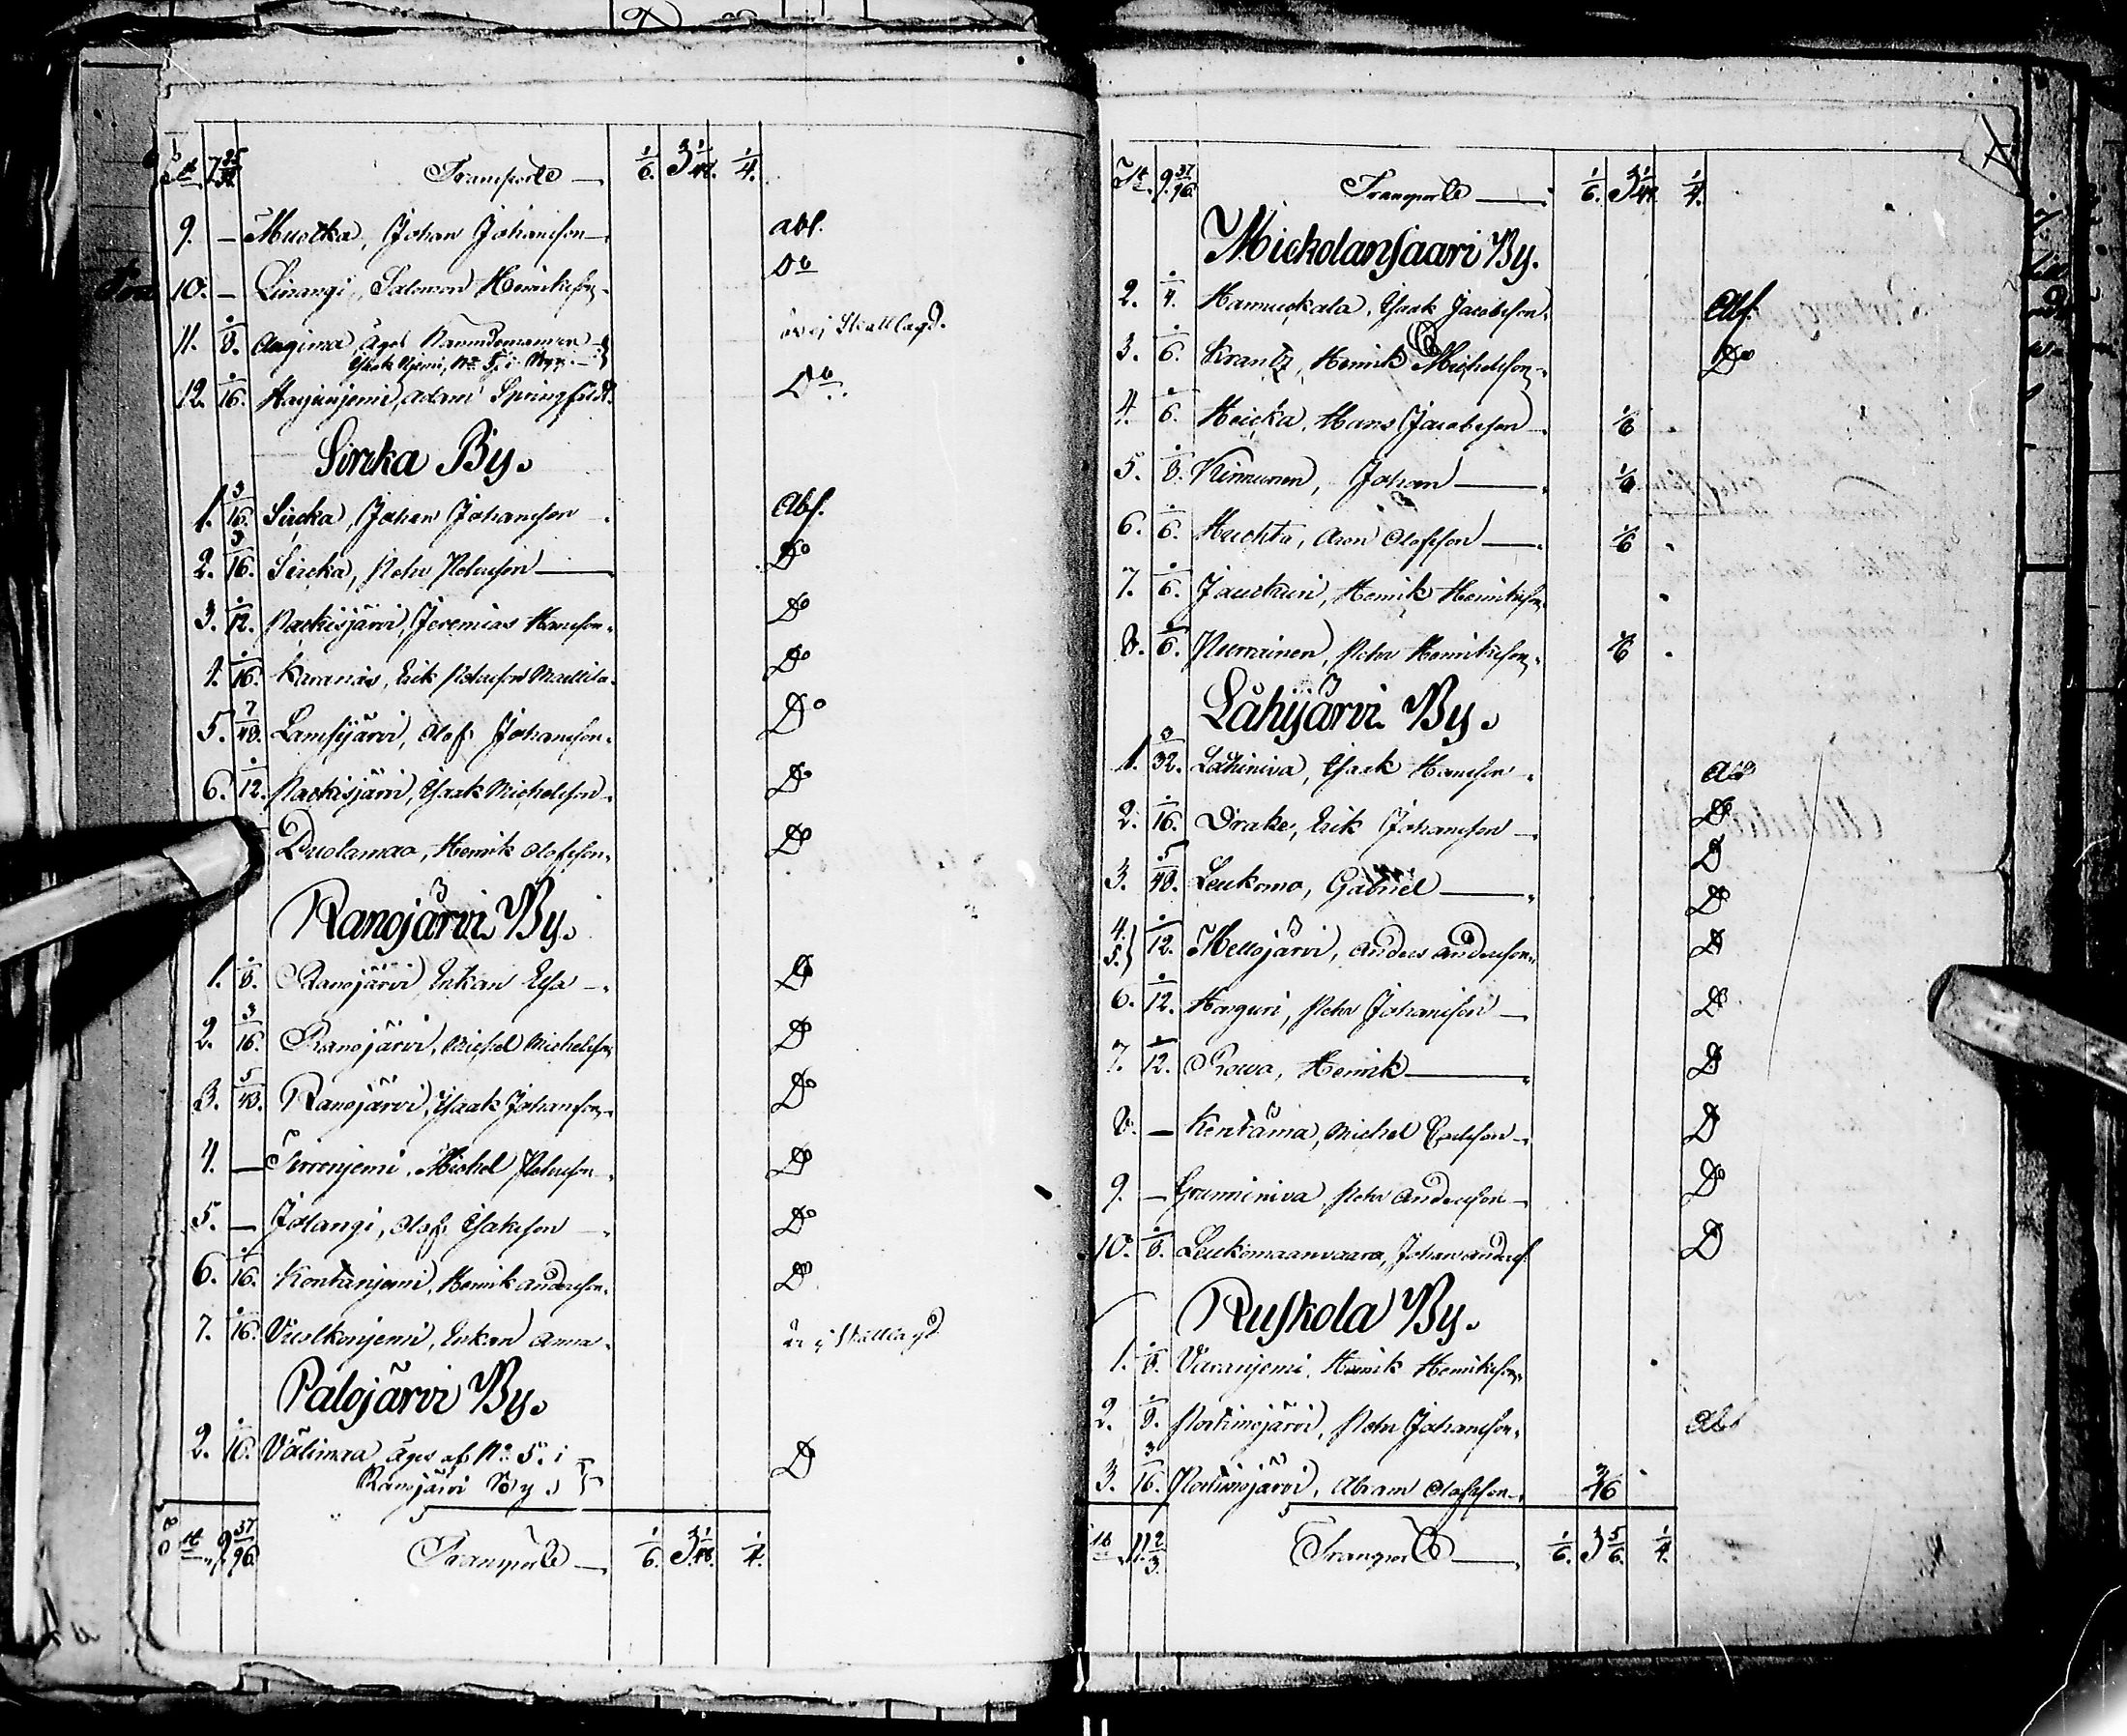 Transporte 1/6. 3 1/48. 1/4.
9. — Muotka, Johan Johansson abs.
10. — Linangi, Salomon Henriksson Do
11. 1/8. Äges
Isack Njemi, No 5, i är ej Skattlagd.
12. 1/16. Harjunjemi, Adam Springfeldt. Do
Sircka By.
1. 3/16. Sircka, Johan Johansson Abs.
2. 3/16. Sircka, Petter Petersson Do
3. 1/12. Packisjärvi, Jeremias Hansson Do
4. 1/16. Karanis, Erik Petersson Do
5. 7/48. Lamsijärvi, Olof Johansson Do
6. 1/12. Packisjärvi, Isaak Michelsson Do
Duolamaa, Henrik Olofsson Do
Ranojärvi By.
1. 1/8. Ranojärvi Enkan Elsa Do
2. 3/16. Ranojärvi, Michel Michelsson Do
3. 5/48. Ranojärvi, Isaak Johansson Do
4. — Törronjemi, Michel Petersson Do
5. — Jolangi, Olof Isaksson Do
6. 1/16. Kontanjemi, Henrik Andersson Do
7. 1/16. Vuolkonjemi, Enkan Anna är ej Skattlagd
Palojärvi By.
2. 1/16. Välimaa äges af No 5. i
Ranojärvi By. Do
9 37/96. Transporte 1/6. 3 1/48. 1/4.
9 37/96. Transporte 1/6. 3 1/48. 1/4.
Mickolansaari By.
2. 1/4. Hannukala, Isaak Jacobsson Abs.
3. 1/6. Krantz, Henrik Michelsson Do
4. 1/6. Heicka, Hans Jacobsson 1/6
5. 1/8. Kinnunen, Johan 1/8
6. 1/6. Huchta, Aron Olofsson 1/6
7. 1/6. Jauckuri, Henrik Henriksson
8. 1/6. Nurmainen, Petter Henriksson 1/6
Låhijärvi By.
1. 3/32. Låhiniva, Isaak Hansson abs
2. 1/16. Drake, Erik Johansson Do
3. 5/48. Leukomo, Gabriel Do
4. Do
5. 1/12. Mellojärvi, Anders Andersson Do
6. 1/12. Harguri, Petter Johansson Do
7. 1/12. Rowa, Henrik Do
8. — Kentämä, Michel Do
9. — Grunniniva Petter Andersson Do
10. 1/8. Leukomaanvaara, Johan Anders. Do
Ruskola By.
1. 1/8. Varanjemi, Henrik Henriksson
2. 1/8. Portimojärvi, Petter Johansson Abs
3. 3/16. Portimojärvi, Abram Olofsson 3/16
11 2/3. Transporte 1/6. 3 5/6. 1/4.